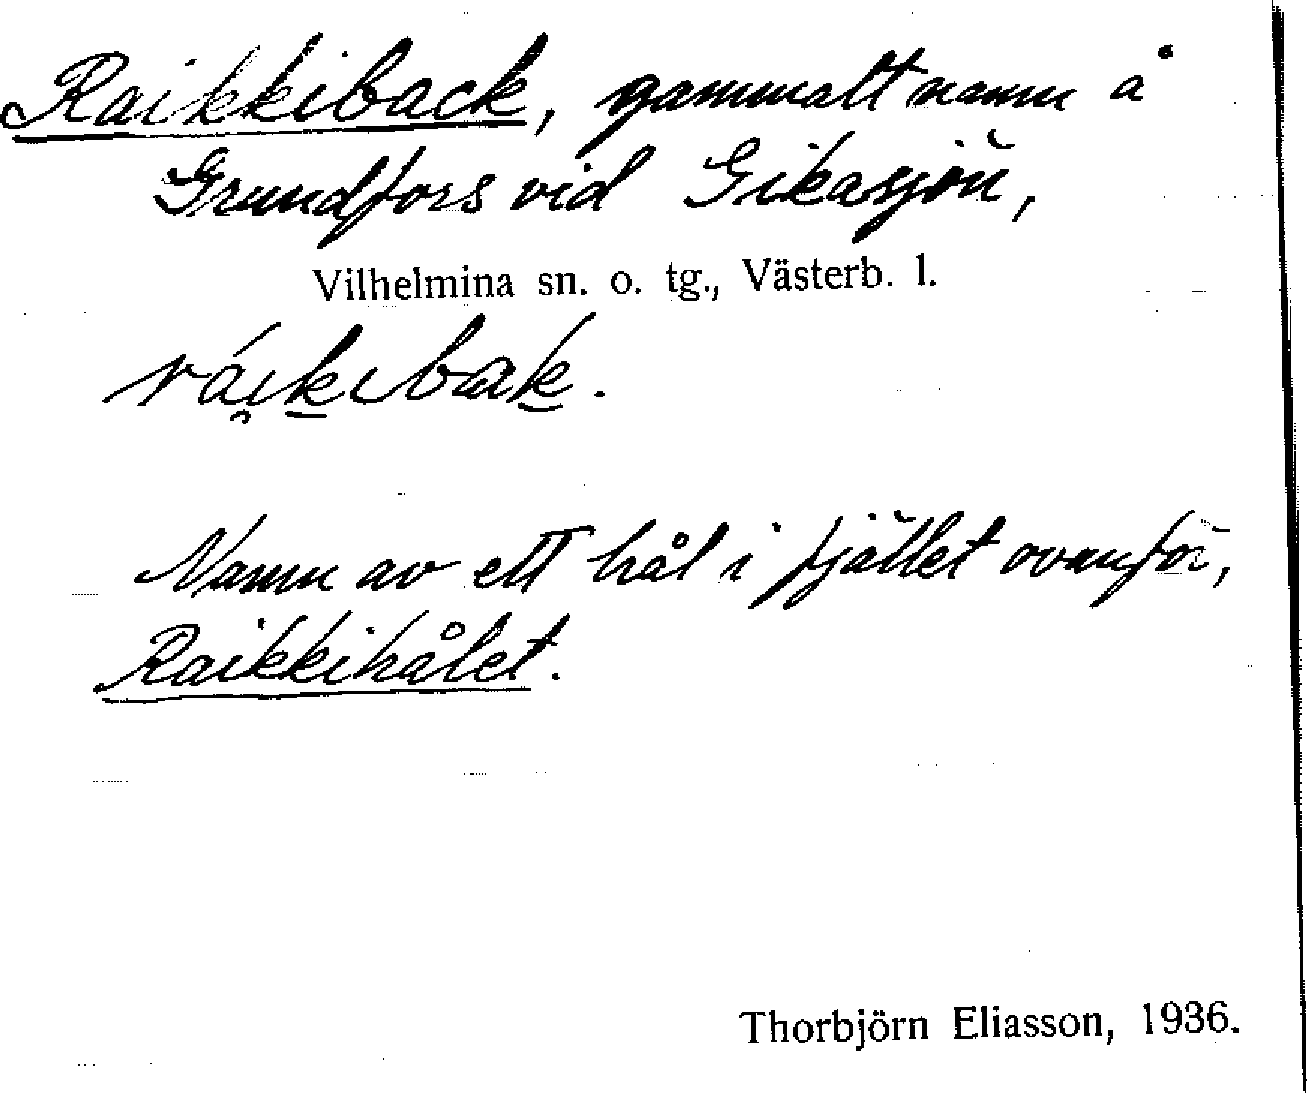 Raikkiback, gammalt namn å
Grundfors vid Gikasjön,
Vilhelmina sn. o. tg., Västerb. l.
rái̯k̲ıbak̲.
Namn av ett hål i fjället ovanför,
Raikkihålet.
Thorbjörn Eliasson, 1936.